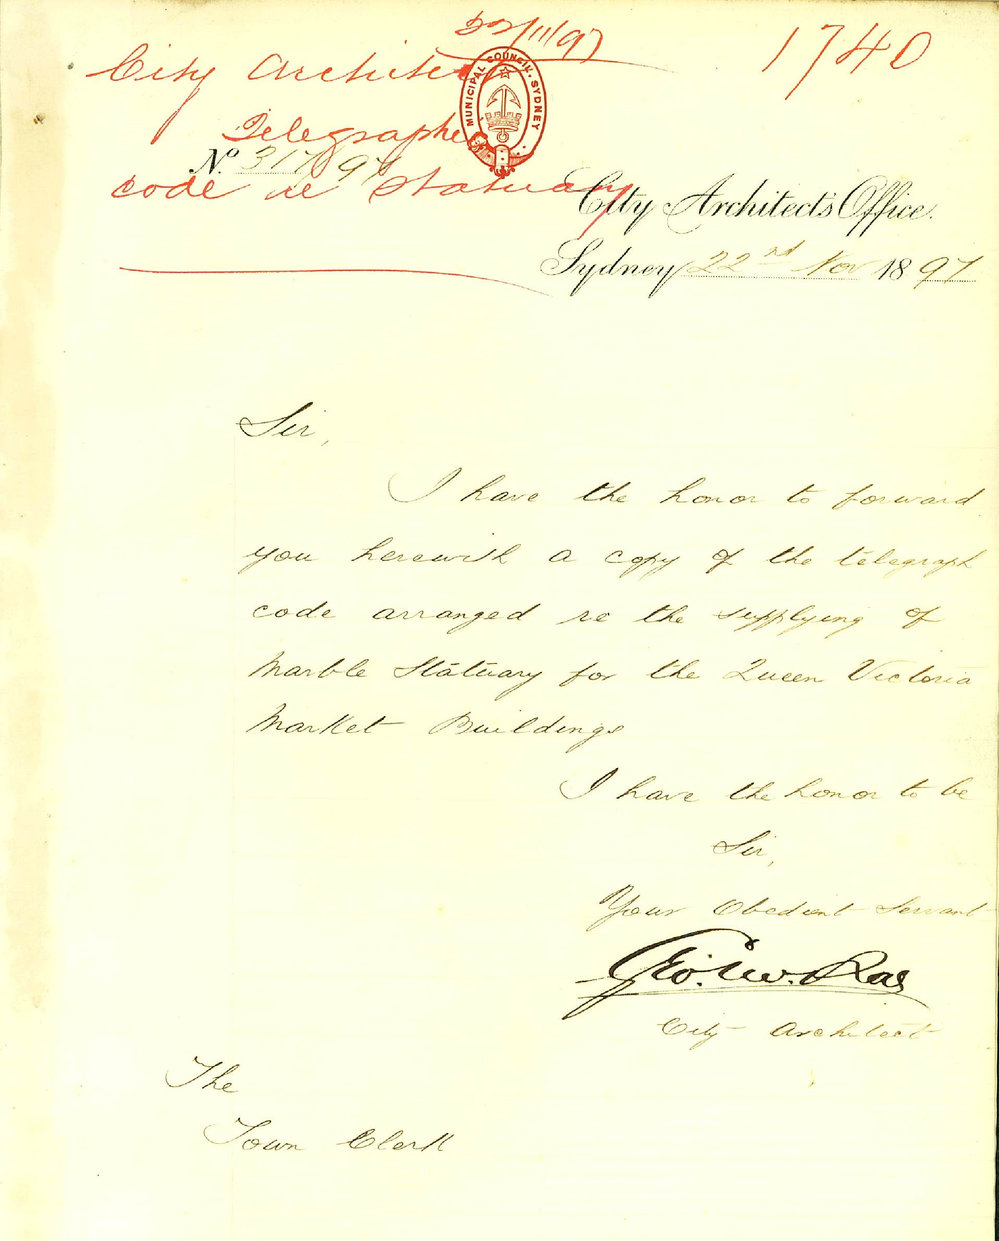 22/11/97
1740
City Architect
Telegraphe
code re statuary
MUNICIPAL COUNCIL. SYDNEY
No. 317/97
City Architect's Office.
Sydney 22nd Nov 1897
Sir,
I have the honor to forward
you herewith a copy of the telegraph
code arranged re the supplying of
Marble Statuary for the Queen Victoria
Market Buildings
I have the honor to be
Sir,
Your Obedient Servant
Geo. McRae
City Architect
The
Town Clerk